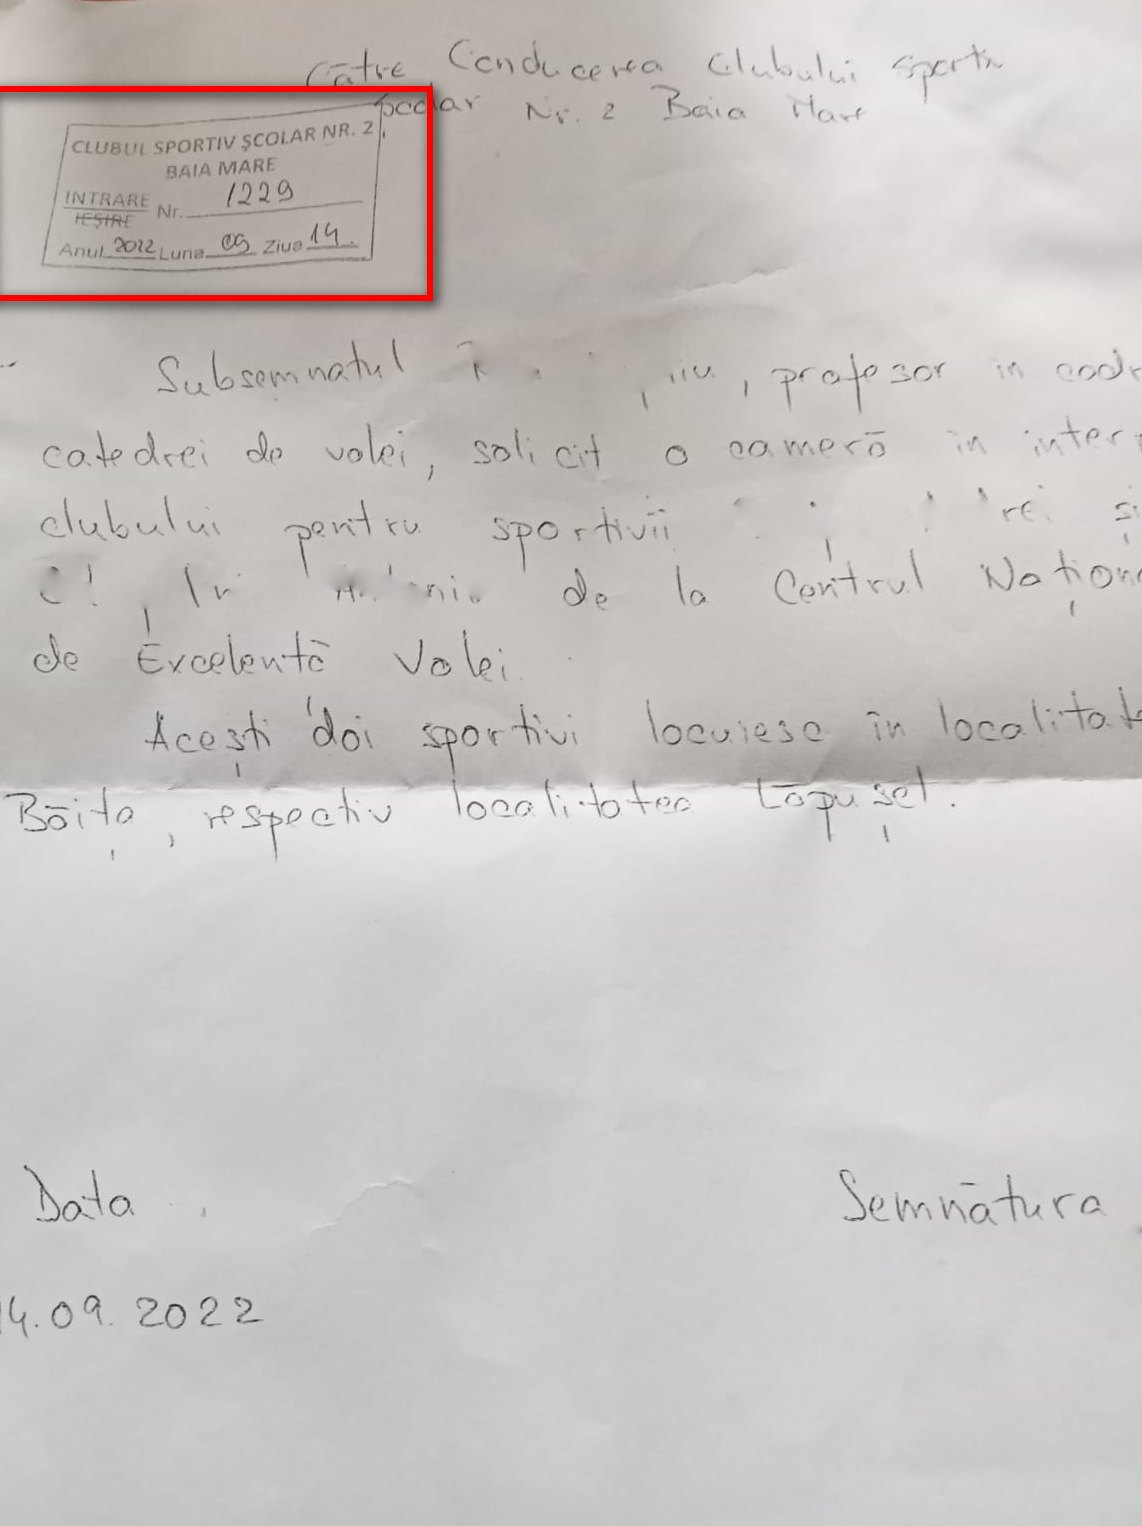 Către Conducerea Clubului Sportiv
Școlar Nr. 2 Baia Mare
CLUBUL SPORTIV ȘCOLAR NR. 2
BAIA MARE
INTRARE
IEȘIRE
Nr. 1229
Anul 2022 Luna 09 Ziua 14.
Subsemnatul , profesor în cadr
catedrei de volei, solicit o cameră în inter
clubului pentru sportivii și
de la Centrul Națion
de Excelență Volei.
Acești doi sportivi locuiesc în localitat
Băița, respectiv localitatea Lăpușel.
Data Semnătura
14.09.2022